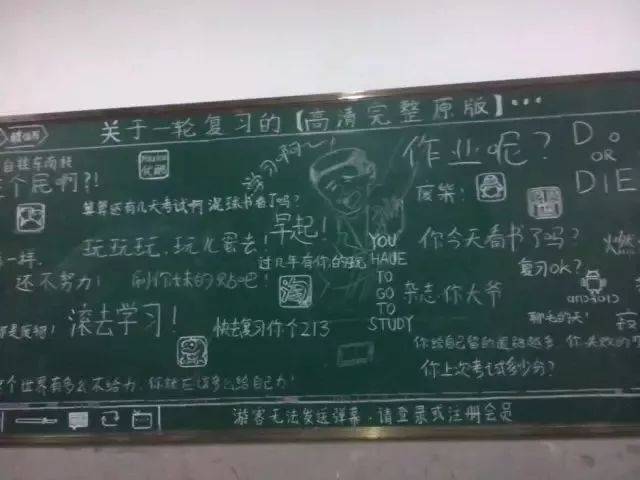 关于一轮复习的【高清完整原版】...
Youku
优酷
学习啊~!
作业呢?
Do
OR
DIE
个屁啊?!
算算还有几天考试啊 滚球书看了吗?
废柴!
早起!
玩玩玩,玩儿蛋去!
过几年有你的玩
YOU
HAVE
TO
GO
TO
STUDY
你今天看书了吗?
一样.
还不努力!
刷你妹的贴吧!
淘
复习OK?
android
杂志.你大爷
聊毛的天!
滚去学习!
快去复习你个213
你上次考试多少分?
个世界有多么不给力,你就应该多么给自己力!
游客无法发送弹幕,请登录或注册会员